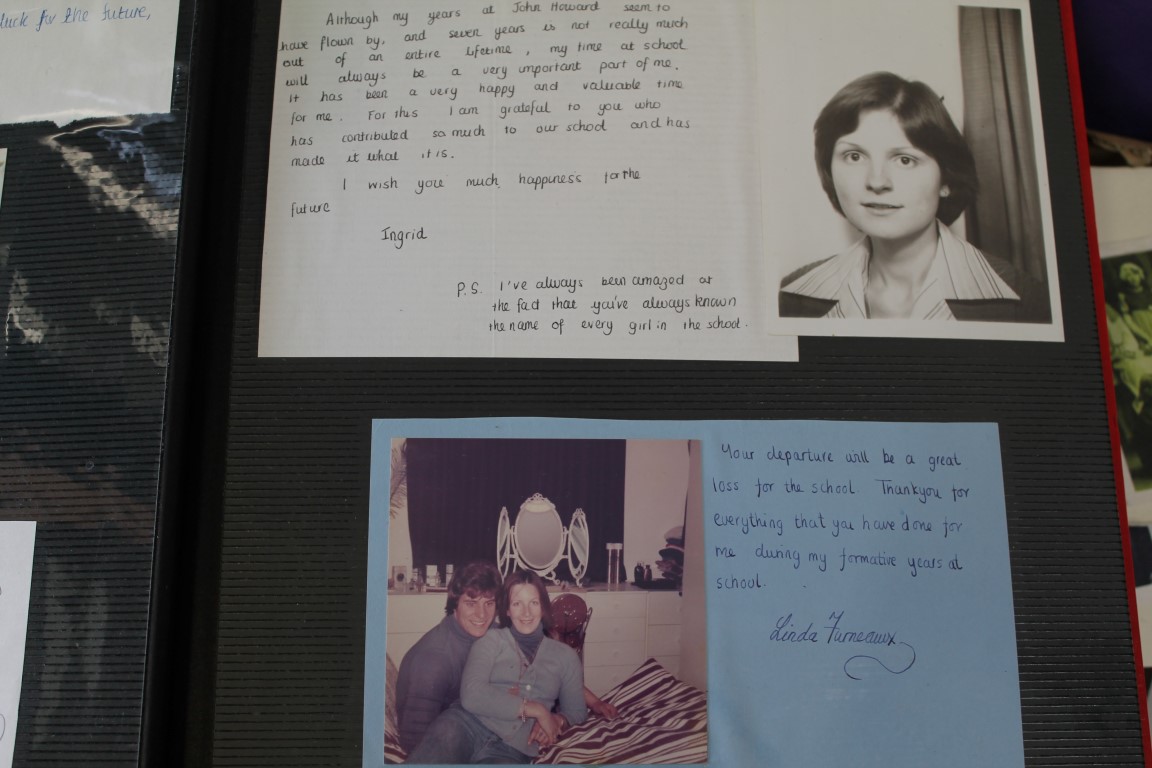 luck for the future,
Although my years at John Howard seem to
have flown by, and seven years is not really much
out of an entire lifetime, my time at school
will always be a very important part of me.
it has been a very happy and valuable time
for me. For this I am grateful to you who
has contributed so much to our school and has
made it what it is.
I wish you much happiness for the
future
Ingrid
P.S. I've always been amazed at
the fact that you've always known
the name of every girl in the school.
Your departure will be a great
loss for the school. Thankyou for
everything that you have done for
me during my formative years at
school.
Linda Furneaux